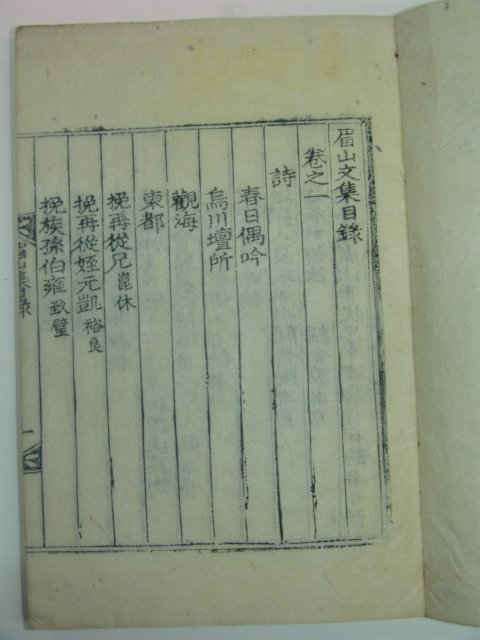 眉山文集目錄
卷之一
詩
春日偶吟
烏川壇所
觀海
東都
挽再從兄崑休
挽再從姪元凱裕良
挽族孫伯雍致璧
眉山集目錄 一